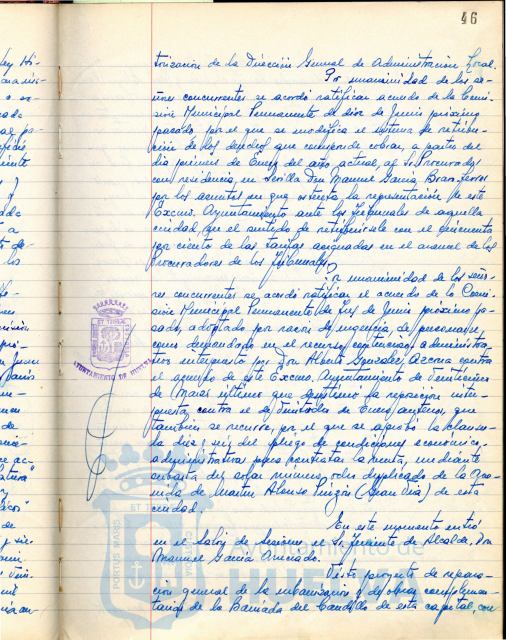 46
torización de la Dirección General de Administración Local.
Por unanimidad de los se-
ñores concurrentes se acordó ratificar acuerdo de la Comi-
sión Municipal Permanente de diez de Junio próximo
pasado, por el que se modifica el sistema de retribu-
ción de los derechos que corresponde cobrar, a partir del
día primero de Enero del año actual, al Sr. Procurador
con residencia en Sevilla Don Manuel García
por los asuntos en que ostenta la representación de este
Excmo. Ayuntamiento ante los Tribunales de aquella
ciudad, en el sentido de retribuirle con el cincuenta
por ciento de las tarifas asignadas en el arancel de los
Procuradores de los Tribunales.
Por unanimidad de los seño-
res concurrentes se acordó ratificar el acuerdo de la Comi-
sión Municipal Permanente de de Junio próximo pa-
sado, adoptado por razón de urgencia, de personarse
como demandado en el recurso contencioso administra-
tivo interpuesto por Don Alberto González Azcona contra
el acuerdo de este Excmo. Ayuntamiento de
de Marzo último que desestimó la reposición inter-
puesta contra el de de Enero anterior, que
también se recurre, por el que se aprobó la cláusu-
la diez y seis del pliego de condiciones económico-
administrativas para contratar la venta, mediante
subasta del solar número ocho duplicado de la Ave-
nida de Martín Alonso Pinzón (Gran Vía) de esta
ciudad.
En este momento entró
en el Salón de Sesiones el Sr. Teniente de Alcalde, Don
Manuel García
Visto proyecto de repara-
ción general de la urbanización y de obras complemen-
tarias de la Barriada del Candil de esta capital, con
AYUNTAMIENTO DE HUELVA
Ayuntamiento de
HUELVA